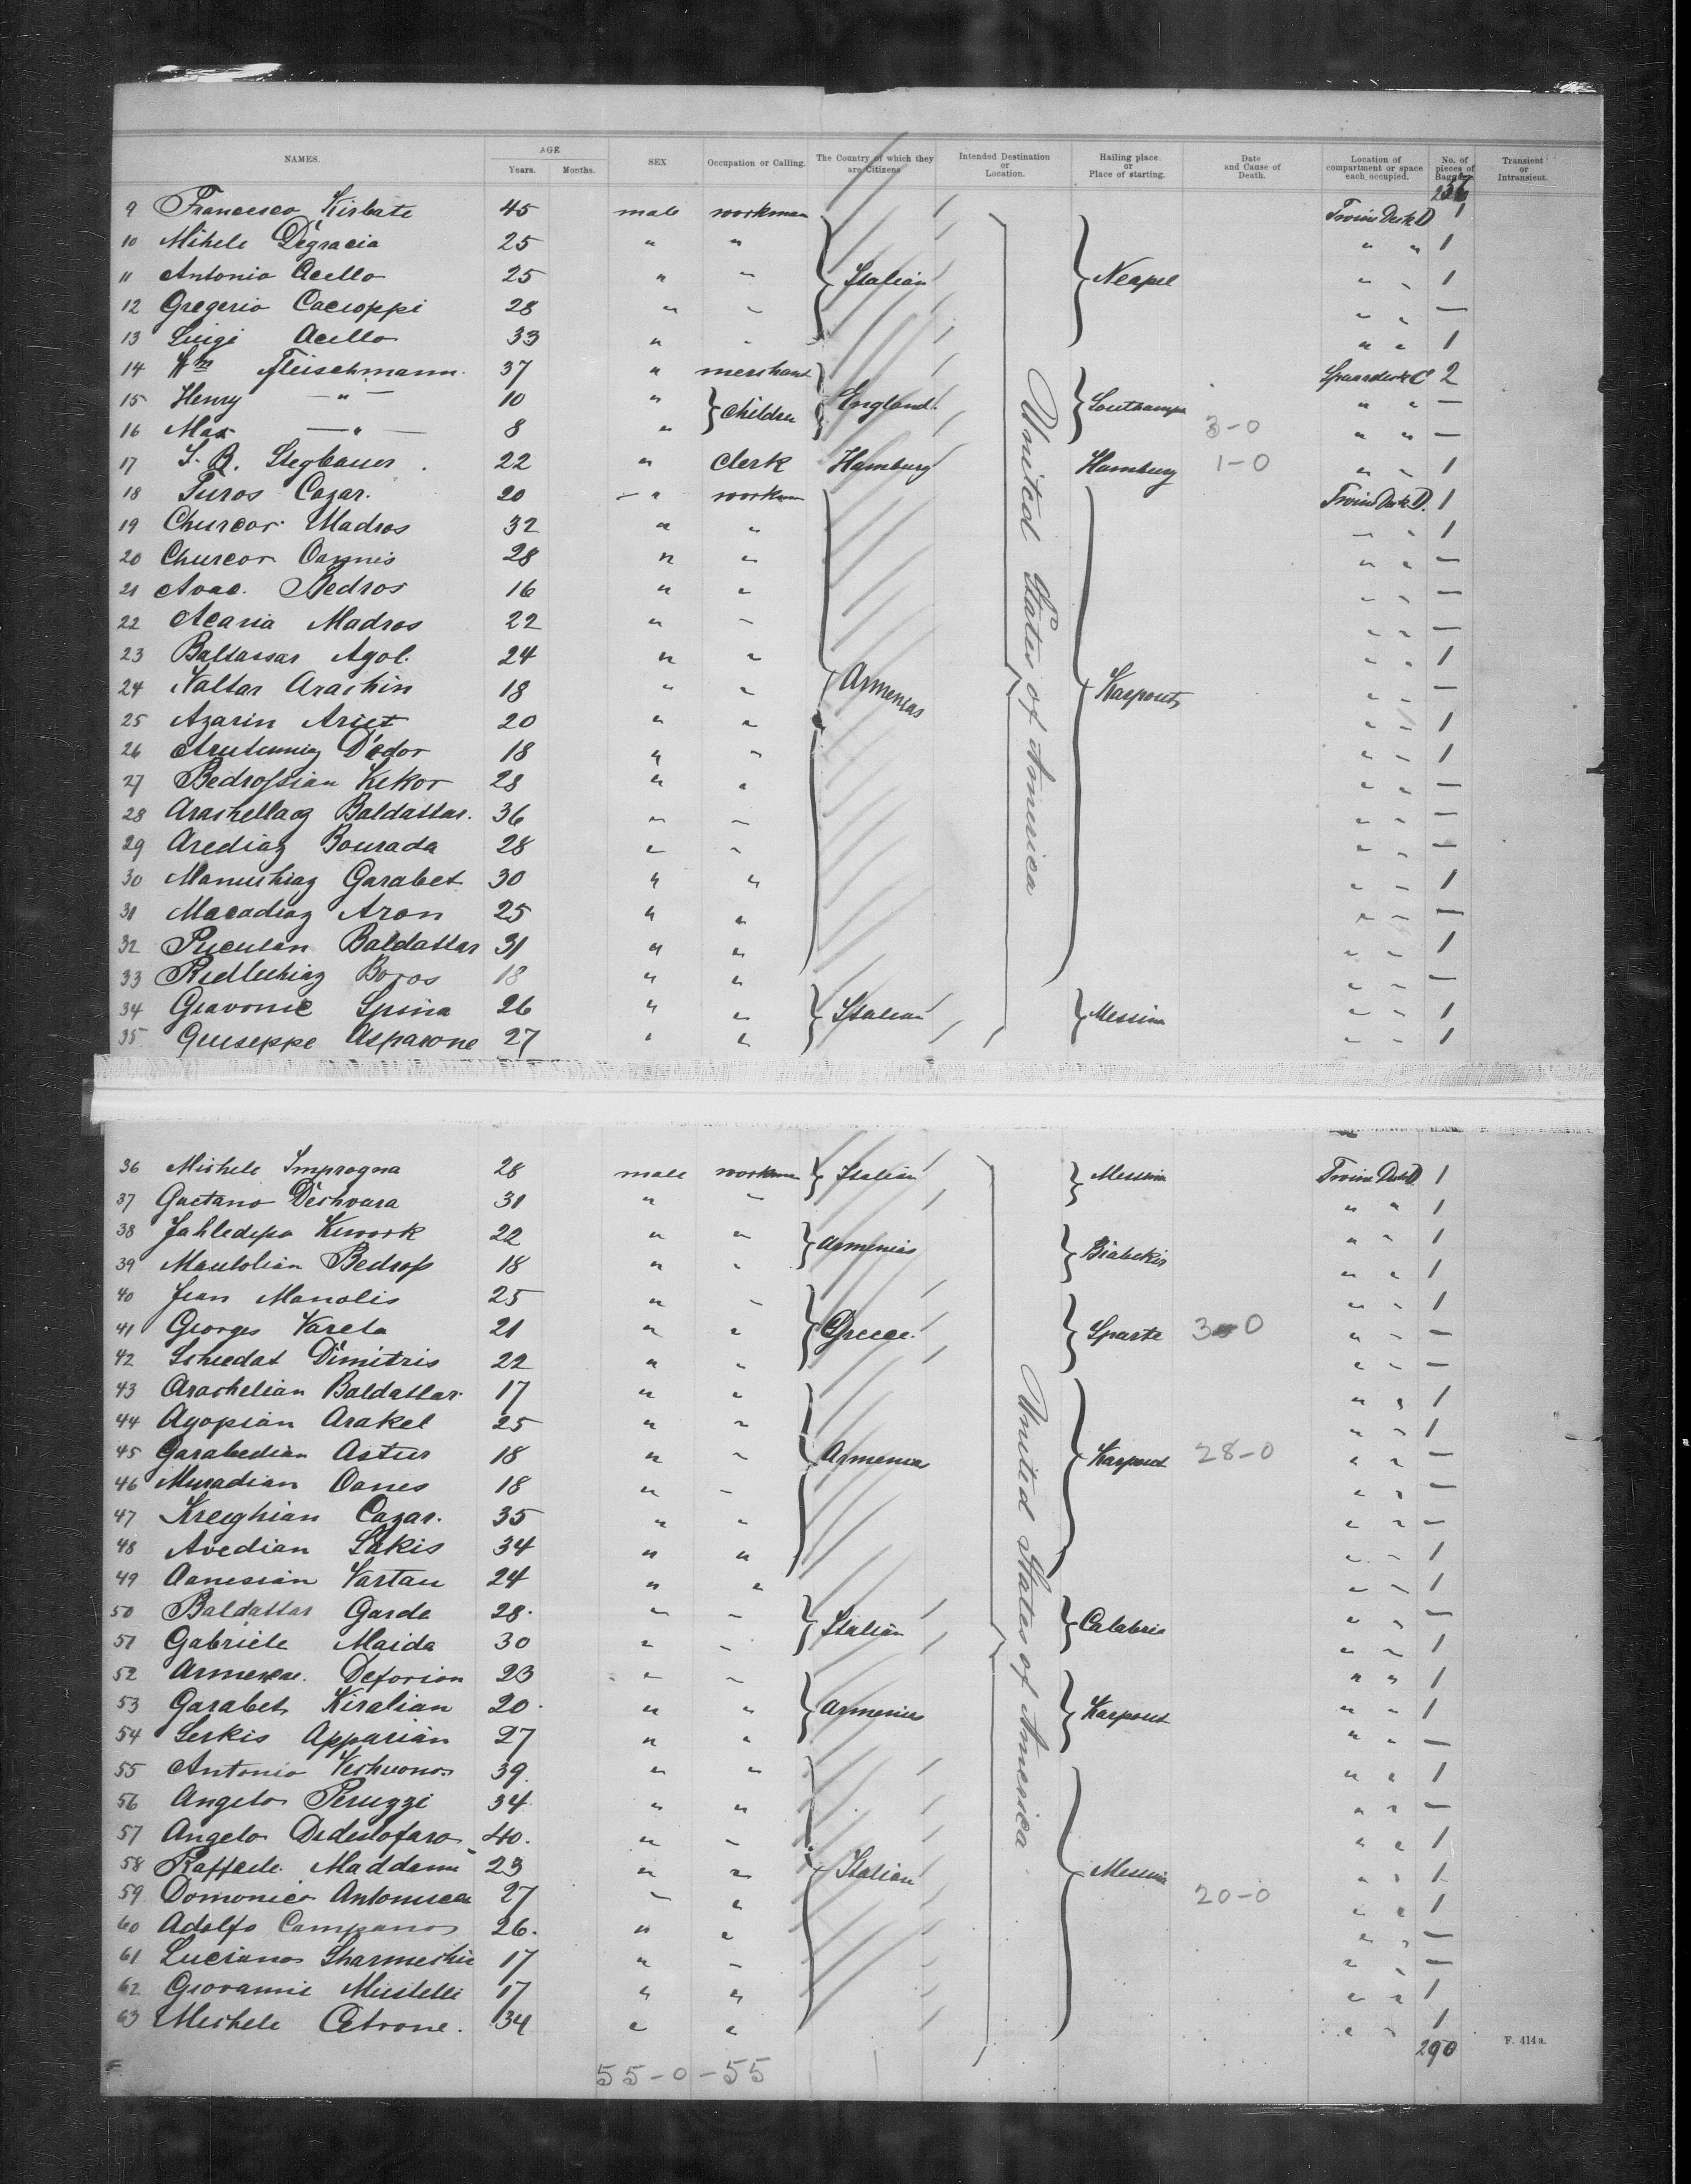 NAMES. AGE Years. Months. SEX Occupation or Calling. The Country of which they are Citizens Intended Destination or Location. Hailing place or Place of starting. Date and Cause of Death. Location of compartment or space each occupied. No. of pieces of Baggage. Transient or Intransient.
9 Francesco Kirbate 45 male workman 1
10 Mihele Degracia 25 " " " " 1
11 Antonio Acello 25 " " Italian Neapel " " 1
12 Gregerio Cacioppi 28 " " " " —
13 Luigi Acello 33 " " " " 1
14 Wm Fleischmann 37 " merchant C 2
15 Henry — " — 10 " children England " " —
16 Max — " — 8 " 3-0 " " —
17 S. B. Stegbauer 22 " clerk Hamburg Hamburg 1-0 " " 1
18 Turos Cazar. 20 — " workman 1
19 Churcor Madros 32 " " — " 1
20 Churcor Oannis 28 " " " " —
21 Avac. Bedros 16 " " " " —
22 Acaria Madros 22 " " " " —
23 Baltassar Agol. 24 " " " " 1
24 Naltar Arachin 18 " " Armenias Karpout " " —
25 Azarin Ariet 20 " " " " 1
26 Dedor 18 " " " " 1
27 Bedrossian Kekor 28 " " " " —
28 Baldassar. 36 " " " " —
29 Arediag Bourada 28 " " " " —
30 Manushiag Garabet 30 " " " " 1
31 Macadiag Aron 25 " " " " —
32 Puculan Baldassar 31 " " " " 1
33 Boros 18 " " " " —
34 Giavonie Spina 26 " " Italian Messina " " 1
35 Giuseppe Asparone 27 " " " " 1
United States of America
36 Michele Improgna 28 male workman Italian Messina 1
37 Gaetano Deshvara 31 " " " " 1
38 Jahledepa Kework 22 " " Armenias " " 1
39 Mautolian Bedross 18 " " Biabekir " " 1
40 Jean Manolis 25 " " " " 1
41 Georges Vareta 21 " " Greece. Sparte 3-0 " " —
42 Schuedat Dimitris 22 " " " " —
43 Arachelian Baldassar 17 " " " " 1
44 Agopian Arakel 25 " " " " 1
45 Garabedian Astur 18 " " Armenia Karpout 28-0 " " —
46 Muradian Oanes 18 " " " " —
47 Kreighian Cazar. 35 " " " " —
48 Avedian Sakis 34 " " " " 1
49 Aanesian Vartan 24 " " " " 1
50 Baldassar Garde 28. " " Italian Calabrie " " —
51 Gabriele Maida 30 " " " " 1
52 Deforian 23 " " " " 1
53 Garabet Kiralian 20 " " Armenias Karpout " " 1
54 Serkis Apparian 27 " " " " —
55 Antonio 39 " " " " 1
56 Angelo Peruzzi 34 " " " " —
57 Angelo Dedestofaro 40. " " " " 1
58 Raffaele Maddenni 23 " " Italian Messina " " 1
59 Domonico 27 " " 20-0 " " 1
60 Adolfo Campanos 26. " " " " —
61 Lucianos 17 " " " " —
62 Giovannie Mustelli 17 " " " " 1
63 Michele Cetrone. 34 " " " " 1
United States of America
290
F. 414 a.
55-0-55